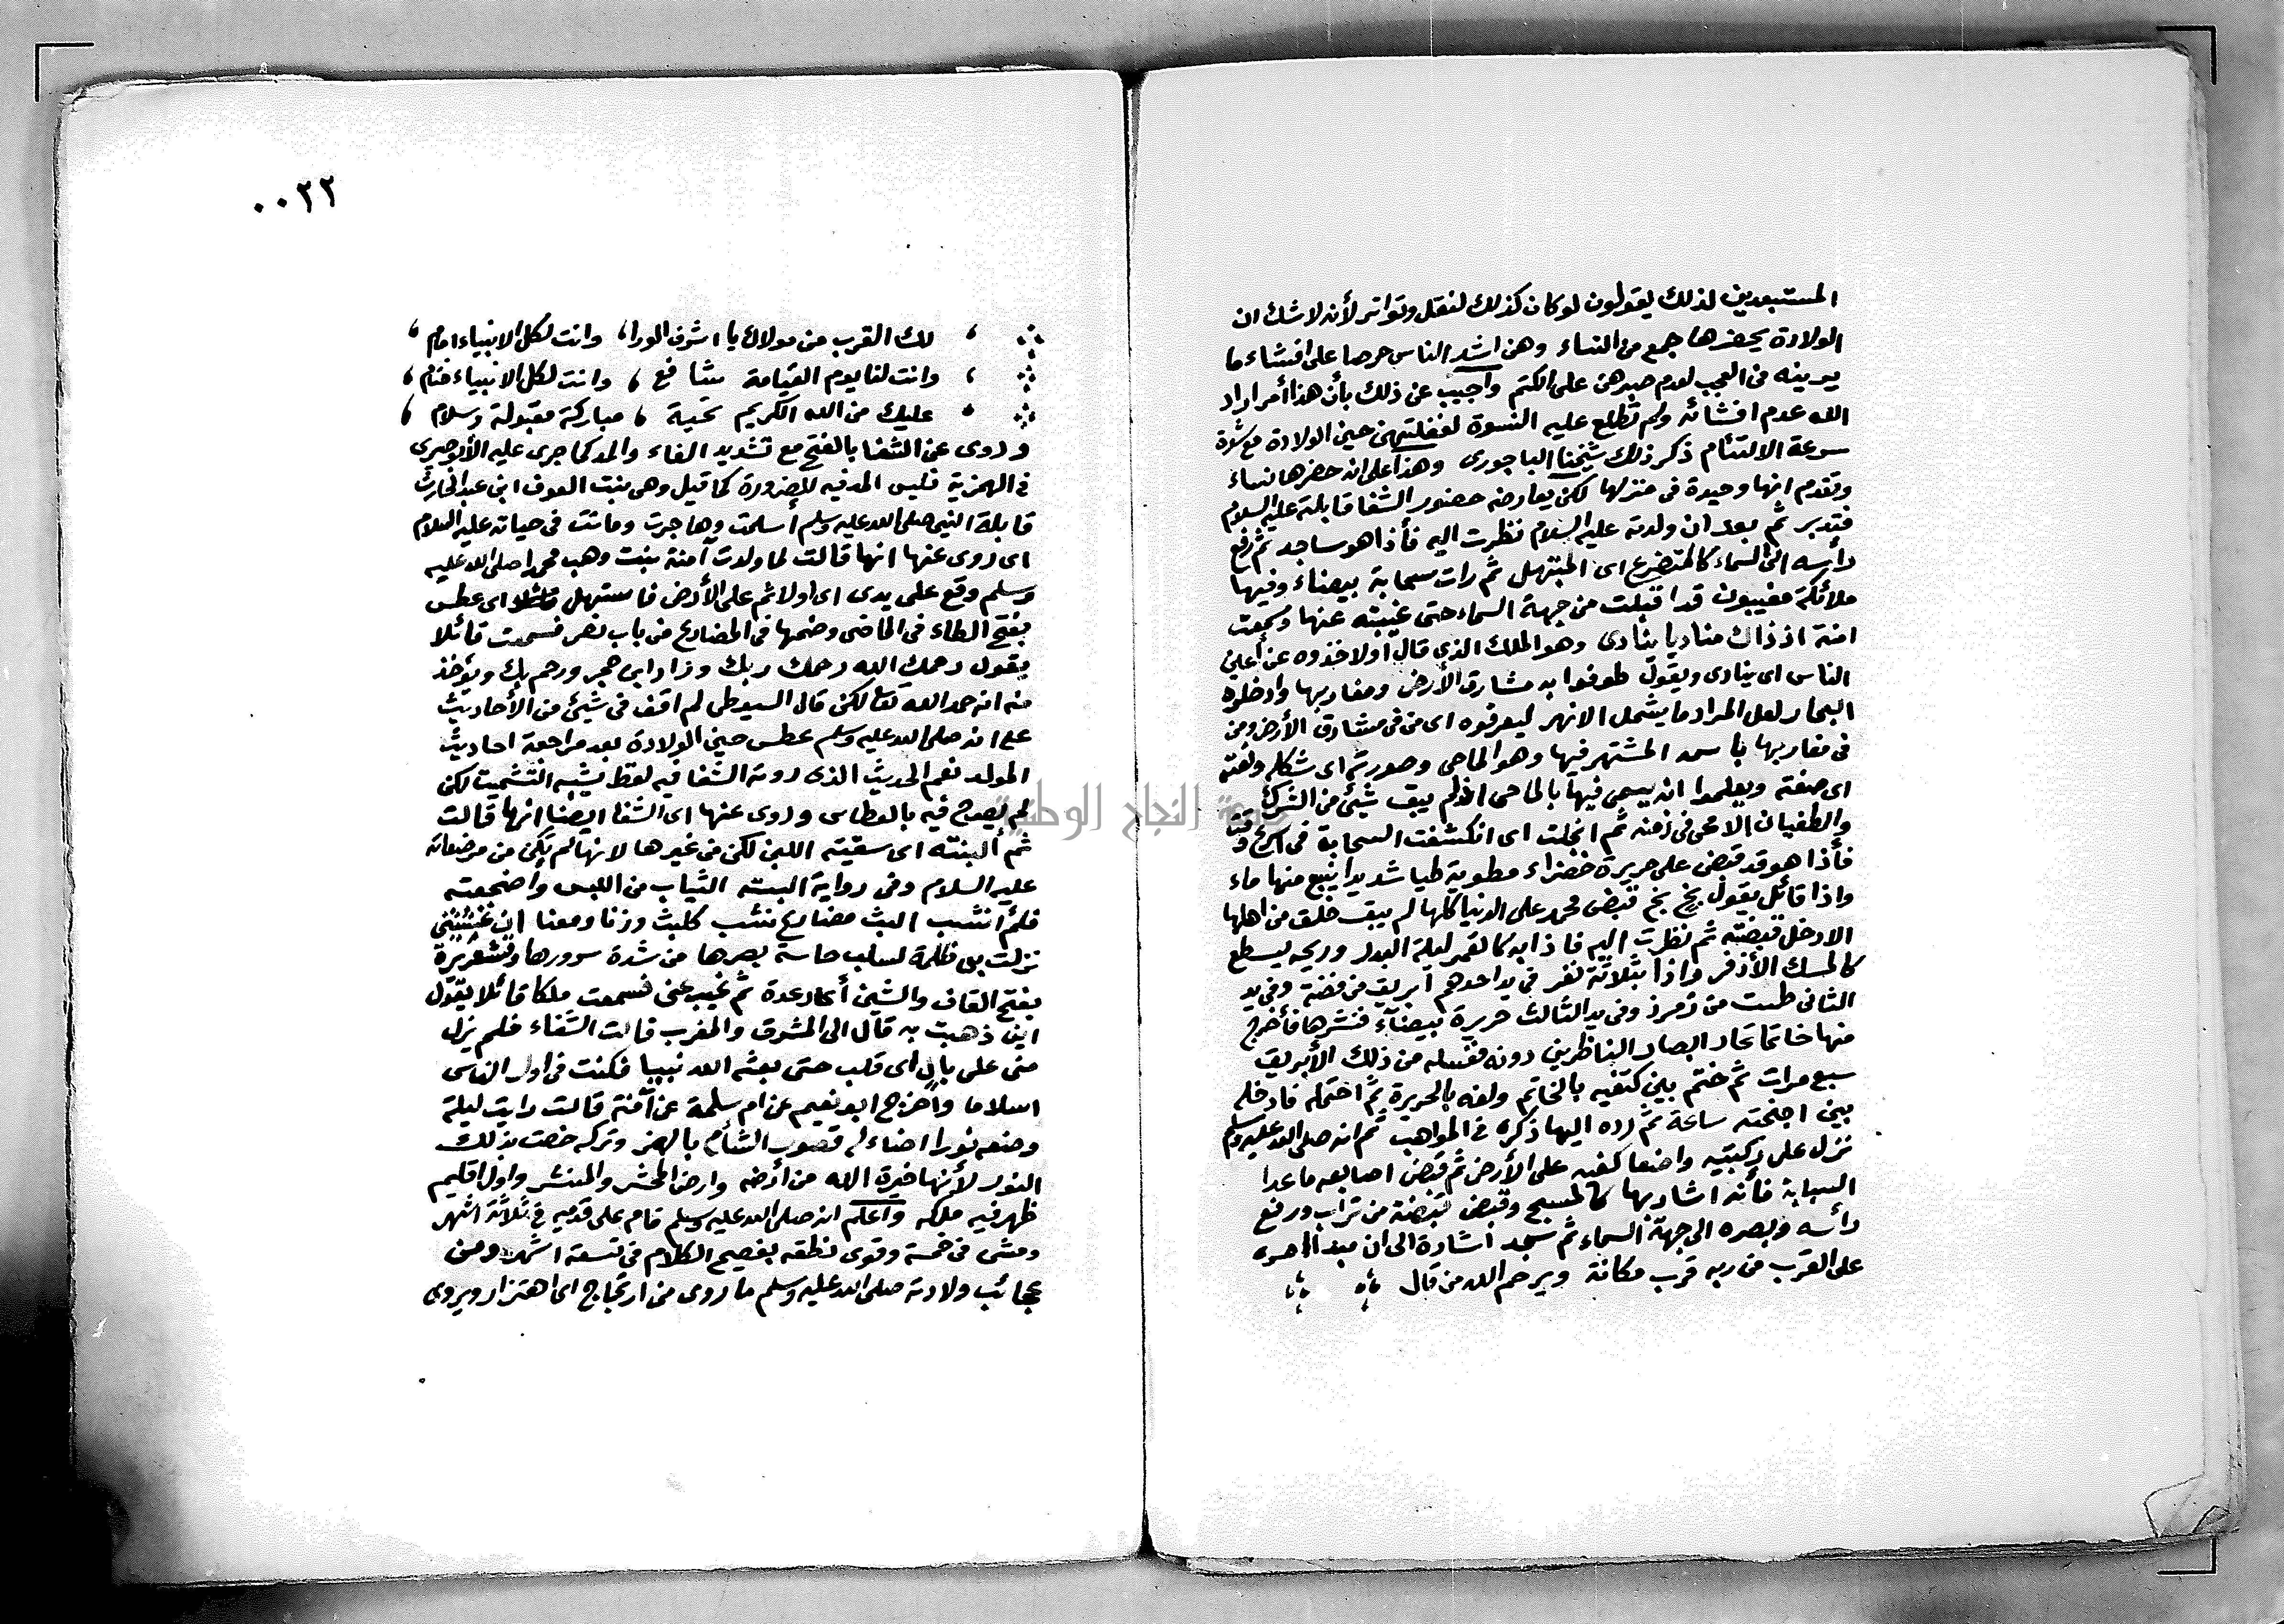 المستبعدين لذلك يقولون لو كان كذلك لنقل وتواتر لأنه لا شك ان
الولادة يحضرها جمع من النساء وهن اشد الناس حرصا على افشاء ما
يرينه من العجب لعدم صبرهن على الكتم واجيب عن ذلك بأن هذا أمر اراد
الله عدم افشائه ولم تطلع عليه النسوة لغفلتهن حين الولادة مع شدة
سرعة الالتئام ذكر ذلك شيخنا الباجورى وهذا على انه حضرها نساء
وتقدم انها وحيدة فى منزلها لكن يعارضه حضور الشفا قابلته عليه السلام
فتدبر ثم بعد ان ولدته عليه السلام نظرت اليه فأذا هو ساجد ثم رفع
رأسه الى السماء كالمتضرع اى المبتهل ثم رات سحابة بيضاء وفيها
ملائكة مغيبون قد اقبلت من جهة السماء حتى غيبته عنها وسمعت
امنة اذ ذاك مناديا ينادى وهو الملك الذى قال اولا خذوه عن أعين
الناس اى ينادى ويقول طوفوا به مشارق الأرض ومغاربها وادخلوه
البحار لعل المراد ما يشمل الانهر ليعرفوه اى من فى مشارق الأرض ومن
فى مغاربها باسمه المشتهر فيها وهو الماحى وصورته اى شكله ونعته
اى صفته ويعلموا انه يسمى فيها بالماحى اذ لم يبق شيئ من الشرك
والطغيان الا محى فى زمنه ثم انجلت اى انكشفت السحابة فى اسرع وقت
فأذا هو قد قبض على حريرة خضراء مطوية طيا شديدا ينبع منها ماء
واذا قائل يقول بخ بخ قبض محمد على الدنيا كلها لم يبق خلق من اهلها
الا دخل قبضته ثم نظرت اليه فاذا به كالقمر ليلة البدر وريحه يسطع
كالمسك الأذفر واذا بثلاثة نفر فى يد احدهم ابريق من فضة وفى يد
الثانى طست من زمرذ وفى يد الثالث حريرة بيضآء فنشرها فأخرج
منها خاتما تحار ابصار الناظرين دونه فغسله من ذلك الأبريق
سبع مرات ثم ختم بين كتفيه بالخاتم ولفه بالحريرة ثم احتمله فادخله
بين اجنحته ساعة ثم رده اليها ذكره فى المواهب ثم انه صلى الله عليه وسلم
نزل على ركبتيه واضعا كفيه على الأرض ثم قبض اصابعه ما عدا
السبابة فأنه اشار بها كالمسبح وقبض قبضة من تراب ورفع
رأسه وبصره الى جهة السماء ثم سجد اشارة الى ان مبدا امره
على القرب من ربه قرب مكانة ويرحم الله من قال
٠٠٢٢
لك القرب من مولاك يا اشرف الورا، وانت لكل الانبياء امام،
وانت لنا يوم القيامة شافع، وانت لكل الانبياء ختام،
عليك من الله الكريم تحية، مباركة مقبولة وسلام،
وروى عن الشفا بالفتح مع تشديد الفاء والمد كما جرى عليه الأبوصيرى
فى الهمزية فليس المد فيه للضرورة كما قيل وهى بنت العوف ابن عبد الحارث
قابلة النبى صلى الله عليه وسلم أسلمت وهاجرت وماتت فى حياته عليه السلام
اى روى عنها انها قالت لما ولدت آمنة بنت وهب محمدا صلى الله عليه
وسلم وقع على يدى اى اولا ثم على الأرض فاستهل اى عطس
بفتح الطاء فى الماضى وضمها فى المضارع من باب نصر فسمعت قائلا
يقول رحمك الله رحمك ربك وزاد ابن حجر ورحم بك ويؤخذ
منه انه حمد الله تعا لكن قال السيوطى لم اقف فى شيئ من الأحاديث
على انه صلى الله عليه وسلم عطس حين الولادة بعد مراجعة احاديث
المولد نعم الحديث الذى روته الشفا فيه لفظ يشبه التشميت لكن
لم يصرح فيه بالعطاس وروى عنها اى الشفا ايضا انها قالت
ثم ألبنته اى سقيته اللبن لكن من غيرها لانها لم تكن من مرضعاته
عليه السلام وفى رواية البسته الثياب من اللبس واضجعته
فلم أنشب البث مضارع نشب كلبث وزنا ومعنا ان غشيتنى
نزلت بى ظلمة لسلب حاسة بصرها من شدة سرورها وقشعريرة
بفتح القاف والشين أى رعدة ثم غيب عنى فسمعت ملكا قائلا يقول
اين ذهبت به قال الى المشرق والمغرب قالت الشفاء فلم يزل
منى على بال اى قلب حتى بعثه الله نبيا فكنت فى اول الناس
اسلاما وأخرج ابو نعيم عن ام سلمة عن آمنة قالت رايت ليلة
وضعه نورا اضاء له قصور الشأم بالهمز وتركه خصت بذلك
النور لأنها خيرة الله من أرضه وارض المحشر والمنشر واول اقليم
ظهر فيه ملكه وأعلم انه صلى الله عليه وسلم قام على قدميه فى ثلاثة اشهر
ومشى فى خمسة وقوى نطقه بفصيح الكلام فى تسعة اشهر ومن
عجائب ولادته صلى الله عليه وسلم ما روى من ارتجاج اى اهتزاز ويروى
النجاح الوطنية